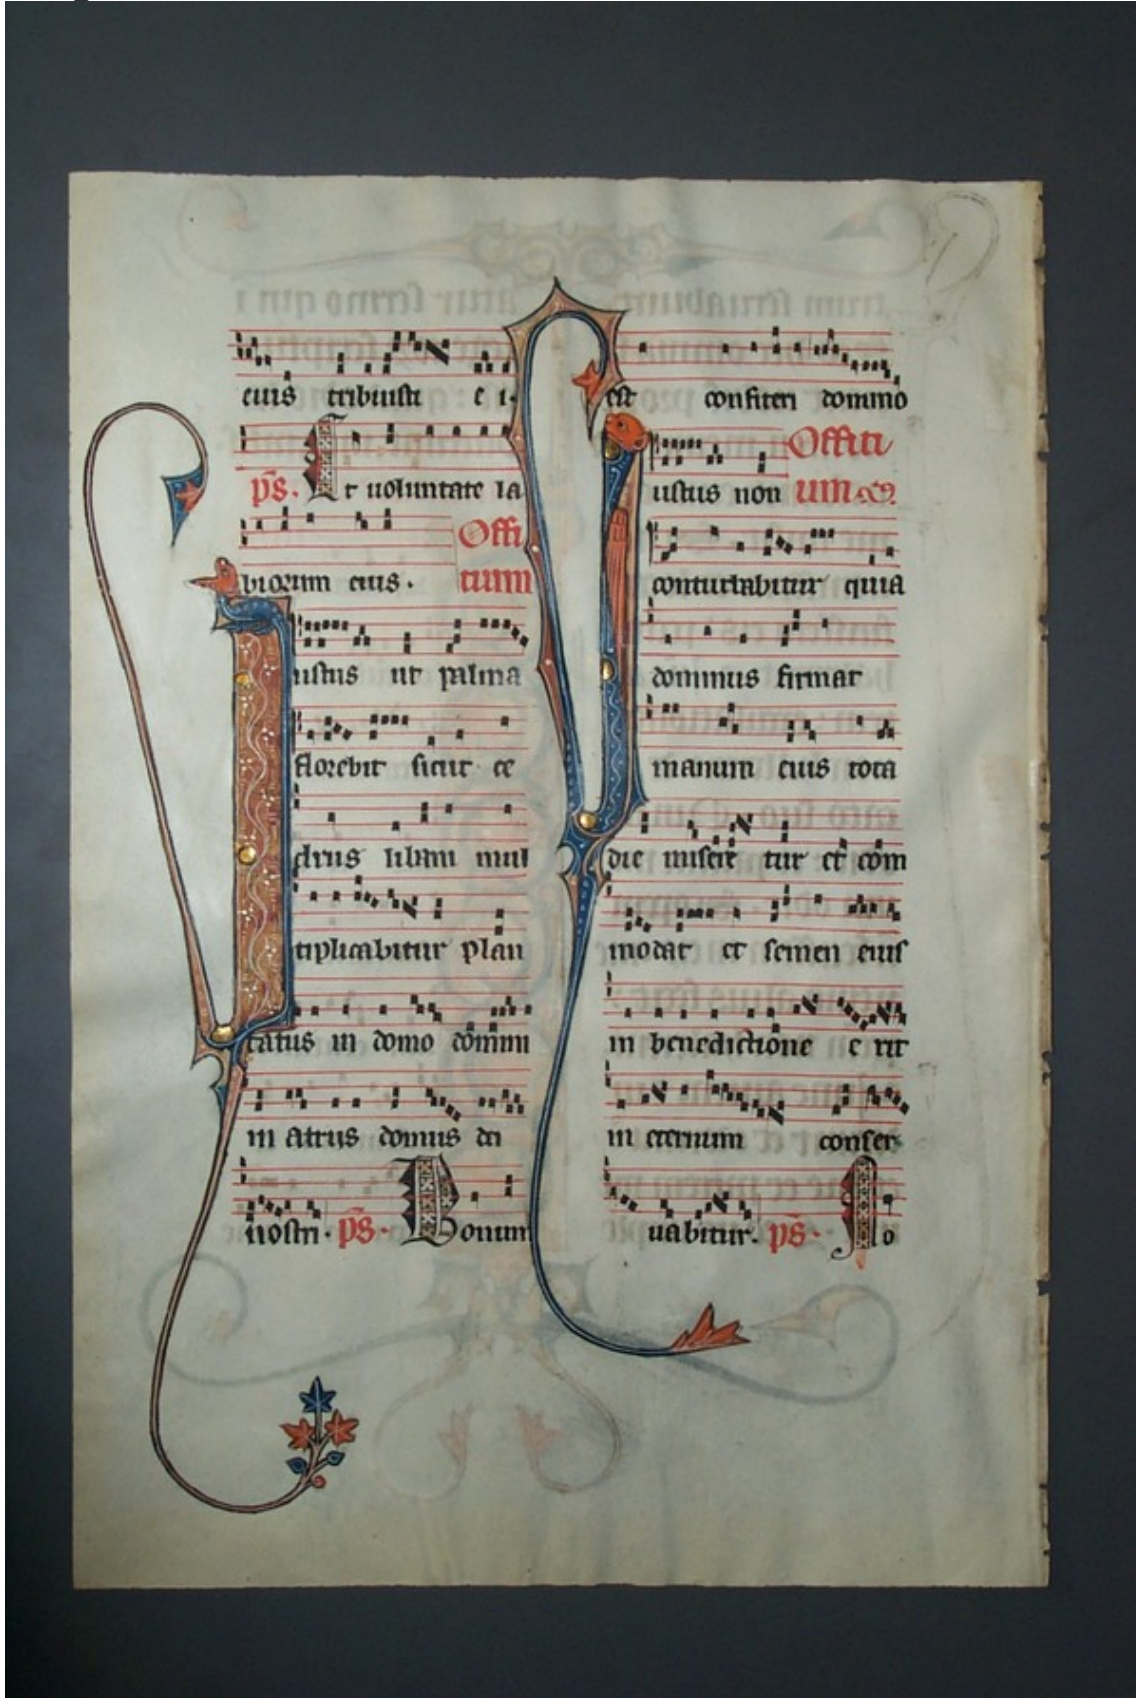 eius tribuisti e i.
ps. Et uoluntate la
biorum eius. Offi
tium
Iustus ut palma
florebit sicut ce
drus libani mul
tiplicabitur plan
tatus in domo domini
in atriis domus dei
nostri. ps. Bonum
est confiteri domino
Offiti
Iustus non um
conturbabitur quia
dominus firmat
manum eius tota
die misere tur et com
modat et semen eius
in benedictione e rit
in eternum conser
uabitur. ps. No